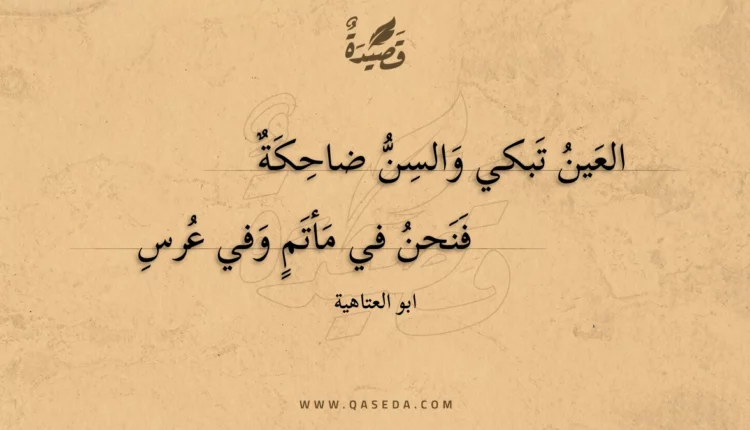 قَصِيدَةٌ
العَينُ تَبكي وَالسِنُّ ضاحِكَةٌ
فَنَحنُ في مَأتَمٍ وَفي عُرسِ
ابو العتاهية
WWW.QASEDA.COM